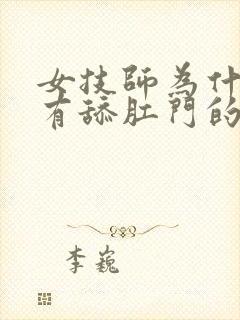 女技師為什
有舔肛門的
李巍